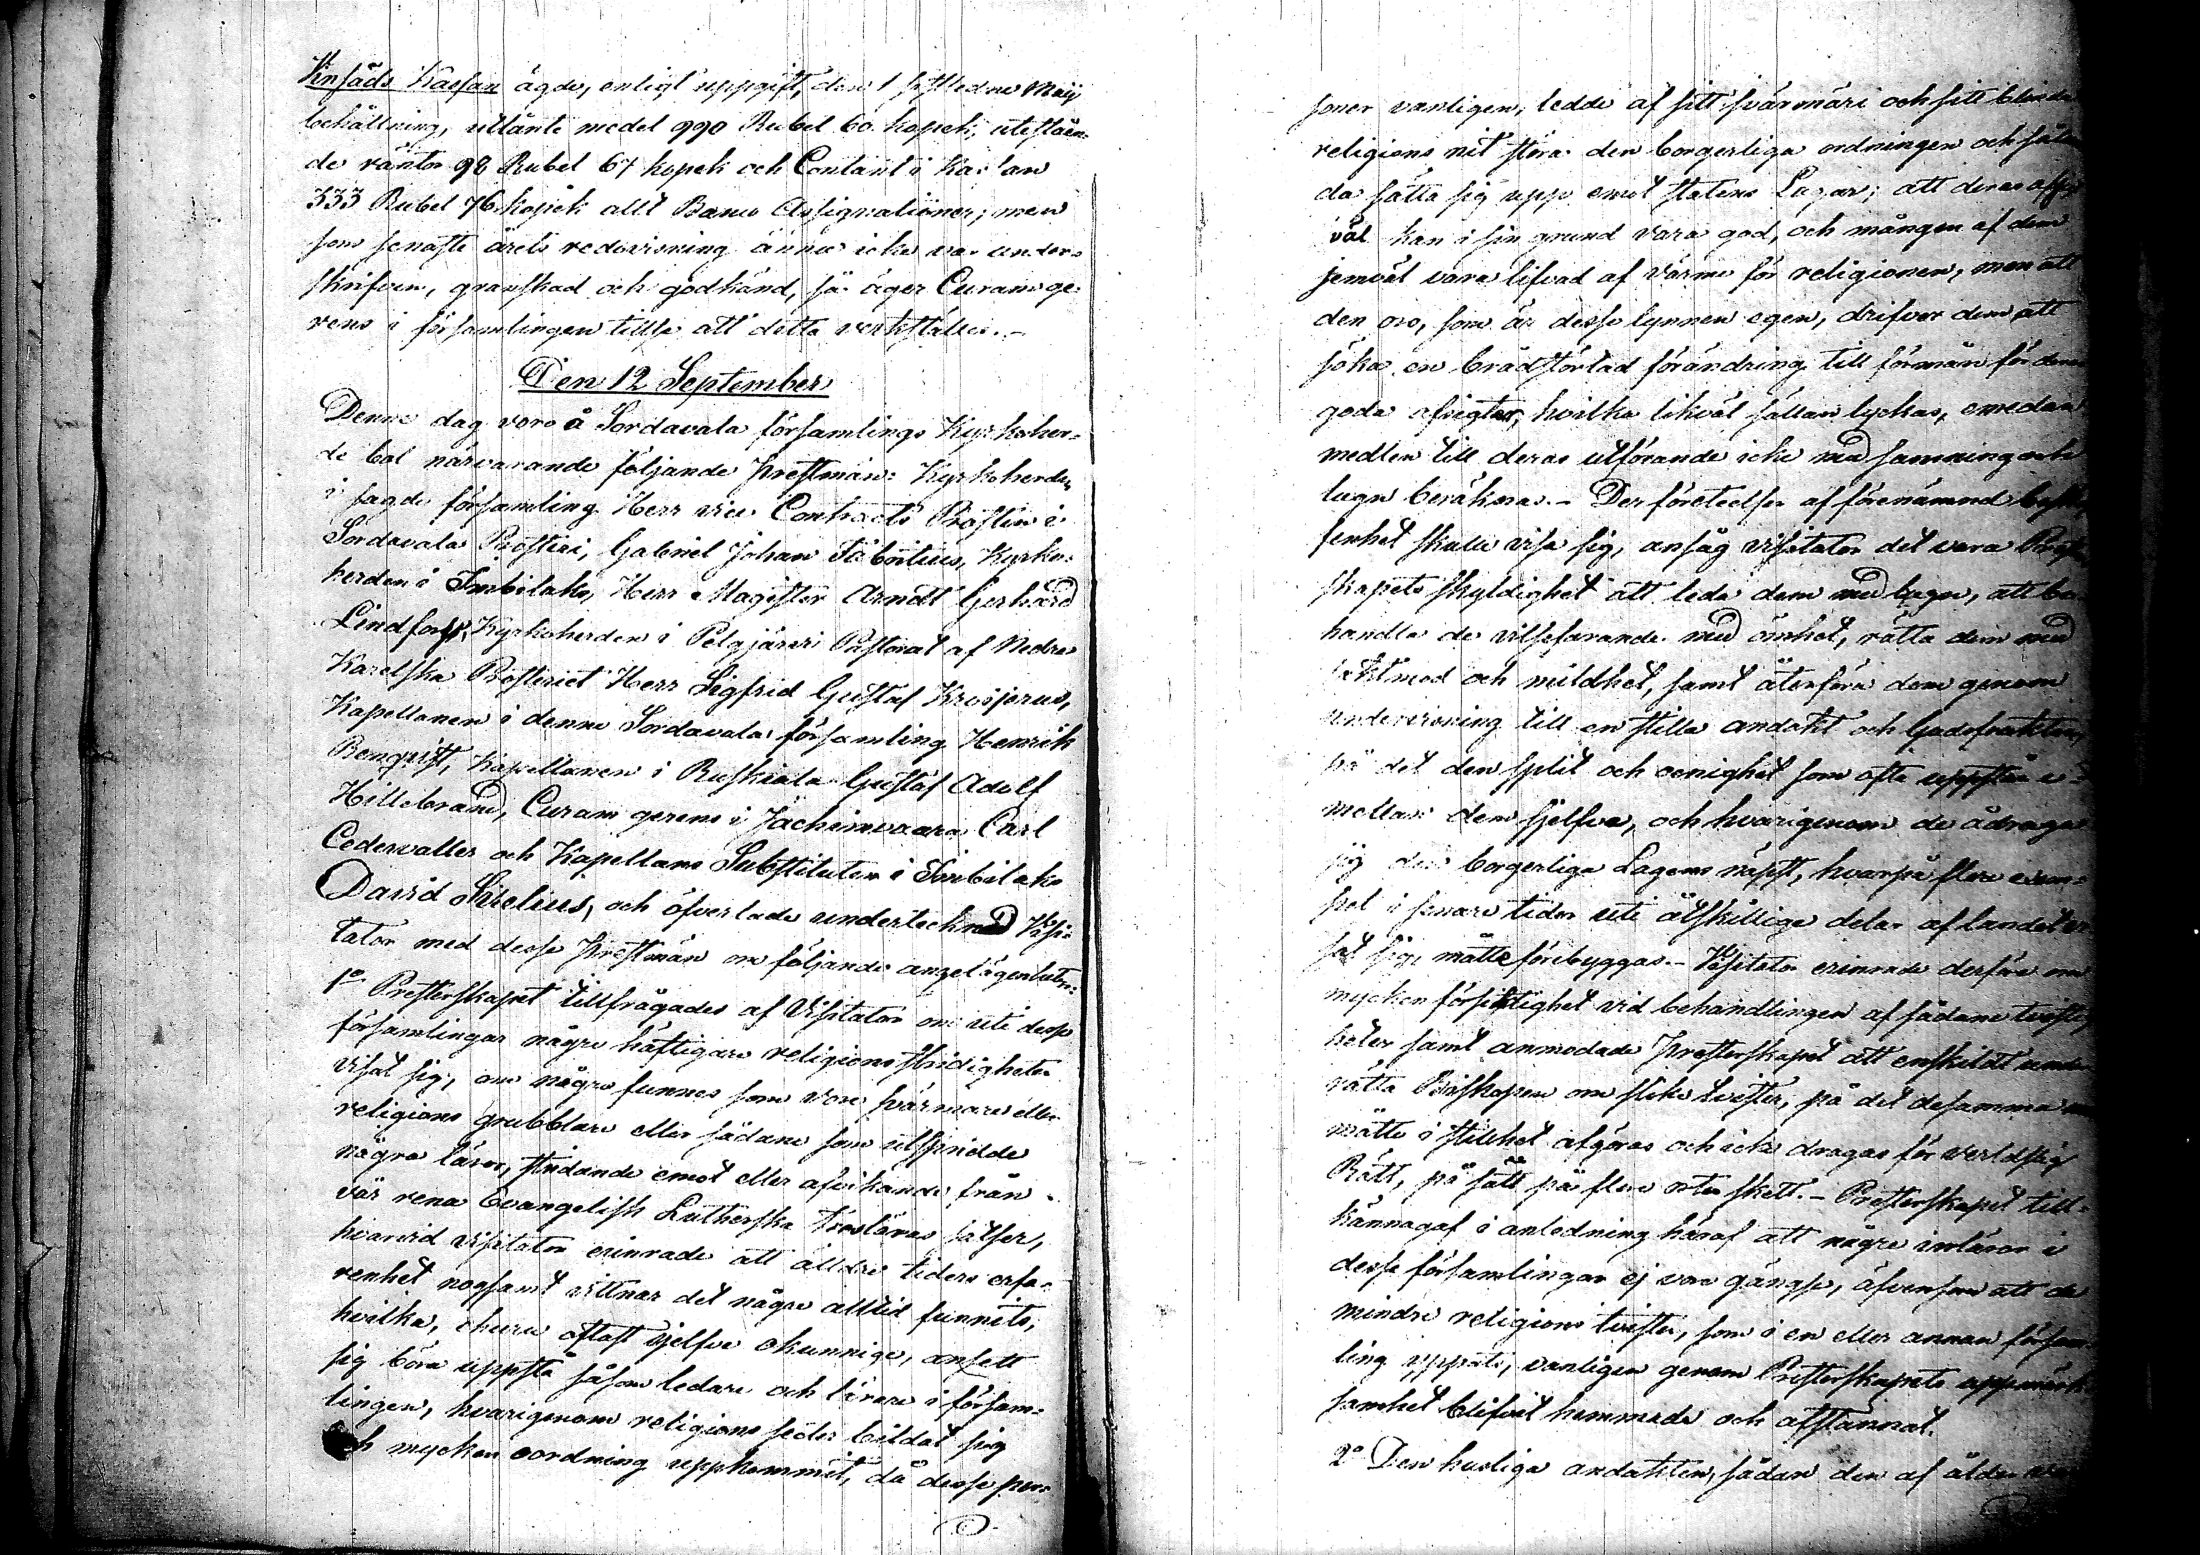 Knsäds Kassan ägde, enligt uppgift, den 1 sistledne Maij
behållning, utlänte medel 990 Rubel 60 kopek, uteståen-
de räntor 98 Rubel 67 kopek och Contant i Kassan
333 Rubel 76 kopek allt Banco Assignationer; men
som senaste årets redovisning ännu icke var under-
skrifven, granskad och godkänd, så äger Curam ge-
rens i församlingen tillse att detta verkställes.-
Den 12 September
Denne dag voro å Sordavala församlings Kyrkoher-
de bol närvarande följande Prestmän: Kyrkoherden
i sagde församling Herr vice Contracts Prosten i
Sordavala Prosteri, Gabriel Johan Fabritius, Kyrko-
herden i Imbilaks, Herr Magister Arndt Gerhard
Lindfors, Kyrkoherden i Pelgjärvi Pastorat af Nedre
Karelska Prosteriet Herr Sigfrid Gustaf Krogerus,
Kapellanen i denne Sordavala församling Henrik
Renqvist, Kapellanen i Ruskiala Gustaf Adolf
Hillebrand, Curam gerens i Jachimvaara Carl
Cedervaller och Kapellans Substituten i Imbilaks
David Sirelius, och öfverlade undertecknad Visi-
tator med desse Prestmän om följande angelägenheter:
1o Presterskapet tillfrågades af Visitator om uti desse
församlingar någre häftigare religions stridigheter
visat sig, om någre funnes som vore svärmare eller
religions grubblare eller sådane som utspridde
någre läror, stridande emot eller afvikande från
vår rena Evangelisk Lutherska Troslåras satser,
hvarvid visitator erinrade att äldre tiders erfa-
renhet nogsamt vittnar det någre alltid funnits,
hvilka, ehuru oftast sjelfve okunnige, ansett
sig böra uppstå såsom ledare och lärare i försam-
lingen, hvarigenom religions secter bildat sig
och mycken oordning uppkommit, då desse per-
soner vanligen, ledde af sitt svärmeri och sitt blinda
religions nit störa den borgerliga ordningen och såle-
da sätta sig upp emot statens Lagar; att deras afsigt
väl kan i sin grund vara god, och mången af dem
jemväl vara lifvad af värme för religionen, men att
den oro, som är desse lynnen egen, drifver dem att
söka en brådstörtad förändring till förmån för deras
goda afsigter, hvilka likväl sällan lyckas, emedan
medlen till deras utförande icke med sansning och
lugn beräknas.- Der företeelser af förenämnd beskaf-
fenhet skulle visa sig, ansåg visitator det vara Prest-
skapets skyldighet att leda dem med lugn, att be-
handla de vilsefarande med ömhet, rätta dem med
saktmod och mildhet, samt återföra dem genom
undervisning till en stilla andakt och Gudsfruktan,
på det den split och oenighet som ofta uppstår e-
mellan dem sjelfve, och hvarigenom de ådraga
sig den borgerliga Lagens näpst, hvarpå flere exem-
pel i senare tider uti åtskillige delar af landet
sat sig, måtte förebyggas.- Visitator erinrade derföre om
mycken försiktighet vid behandlingen af sådane tvistig-
heter samt anmodade Presterskapet att enskildt under-
rätta Biskopen om slike tvister, på det desamma
måtte i stillhet afgöras och icke dragas för verldslig
Rätt, på sätt på flere orter skett.- Presterskapet till-
kännagaf i anledning häraf att någre irrläror i
desse församlingar ej vore gängse, äfvensom att de
mindre religions tvister, som i en eller annan försam-
ling yppats, vanligen genom Presterskapets uppmärk-
samhet blifvit hämmade och afstannat.
2o Den husliga andakten, sådan den af ålder